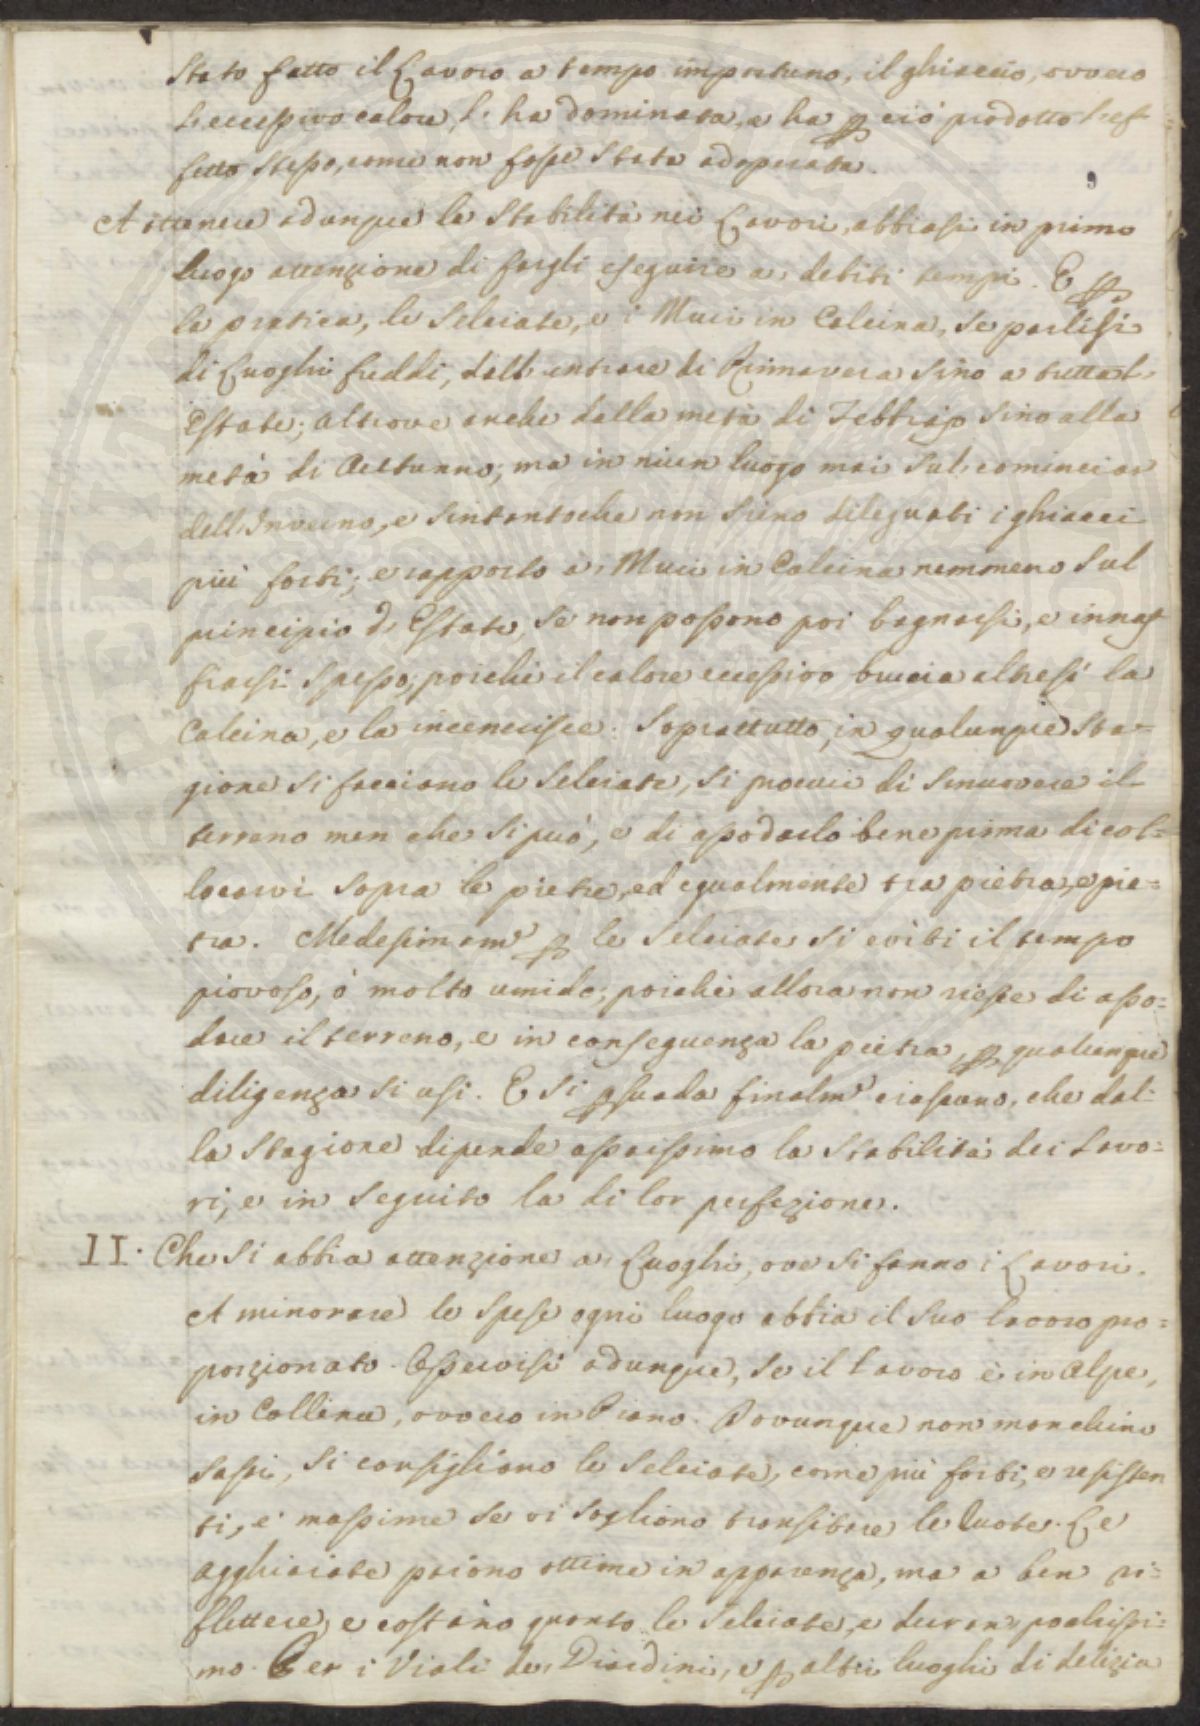 stato fatto il Lavoro a tempo importuno, il ghiaccio, ovvero
l'eccessivo calore, l'ha dominata, e ha p ciò prodotto l'ef-
fetto stesso, come non fosse stata adoperata.
A ottenere adunque la Stabilità nei Lavori, abbiasi in primo
luogo attenzione di fargli eseguire a' debiti tempi. E p
la pratica, le Selciate, e i Muri in Calcina, se parlisi
di Luoghi freddi, dall'entrare di Primavera sino a tutta l'
Estate; altrove anche dalla metà di Febbrajo sino alla
metà di Autunno; ma in niun luogo mai sul cominciar
dell'Inverno, e sintantoche non sieno dileguati i ghiacci
più forti; e rapporto a' Muri in Calcina nemmeno sul
principio d'Estate, se non possono poi bagnarsi, e innaf-
fiarsi spesso; poichè il calore eccessivo brucia altresì la
Calcina, e la incenerisce. Soprattutto, in qualunque sta-
gione si facciano le Selciate, si procuri di smuovere il
terreno men che si può, e di assodarlo bene prima di col=
locarvi sopra le pietre, ed egualmente tra pietra, e pie=
tra. Medesimamᵉ p le Selciate si eviti il tempo
piovoso, ò molto umido; poichè allora non riesce di asso=
dare il terreno, e in conseguenza la pietra, p qualunque
diligenza si usi. E si psuada finalmᵉ ciascuno, che dal=
la Stagione dipende assaissimo la Stabilità dei Lavo=
ri, e in seguito la di lor perfezione.
II. Che si abbia attenzione a' Luoghi, ove si fanno i Lavori.
A minorare le spese ogni luogo abbia il suo lavoro pro=
porzionato. Osservisi adunque, se il Lavoro è in Alpe,
in Collina, ovvero in Piano. Dovunque non manchino
sassi, si consigliano le Selciate, come più forti, e resisten
ti, e massime se vi sogliono transitare le Ruote. Le
agghiaiate paiono ottime in apparenza, ma a ben ri=
flettere, e costano quanto le Selciate, e duran pochissi=
mo. Per i Viali de' Giardini, e p altri luoghi di delizia